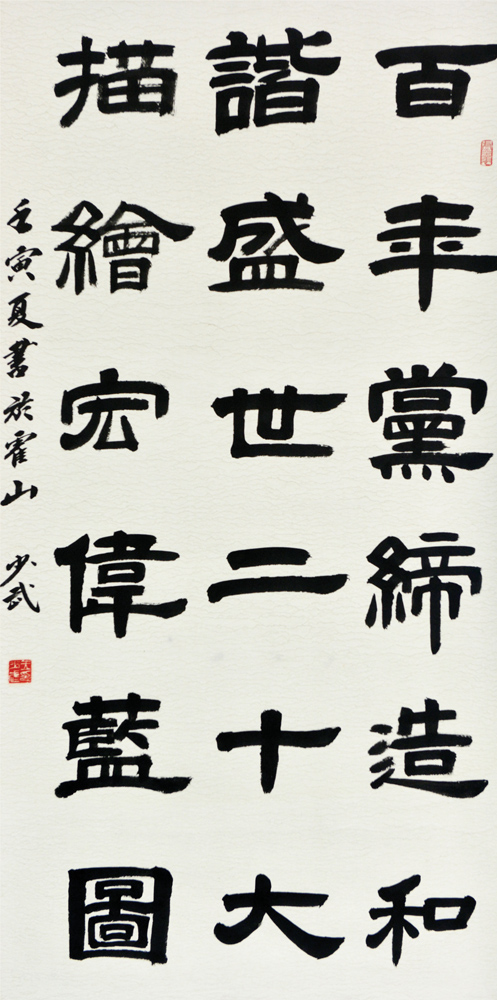 百年黨締造和
諧盛世二十大
描繪宏偉藍圖
壬寅夏書於霍山 少武